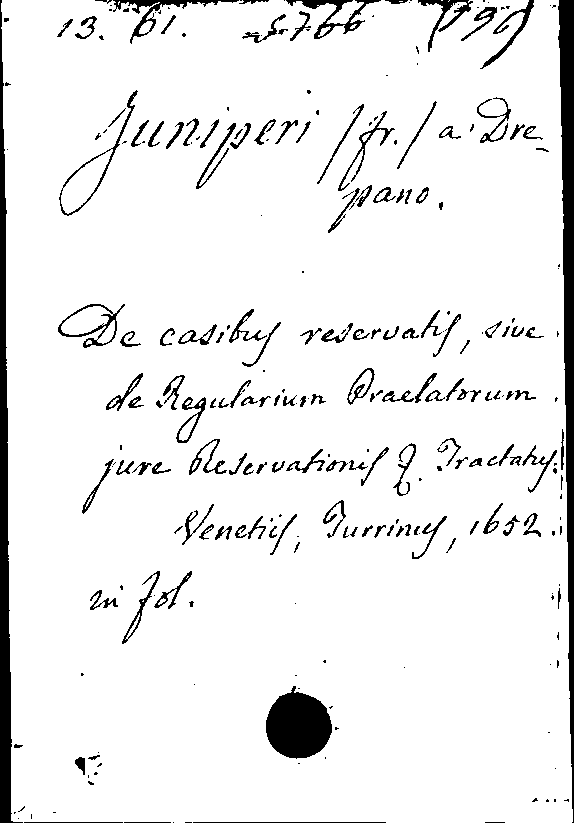 13. 61. 5766 (190)
Juniperi /fr./ a Dre-
pano.
De casibus reservatis, sive
de Regularium Praelatorum
jure Reservationis Tractatus.
Venetiis, Turrinus, 1652.
in fol.